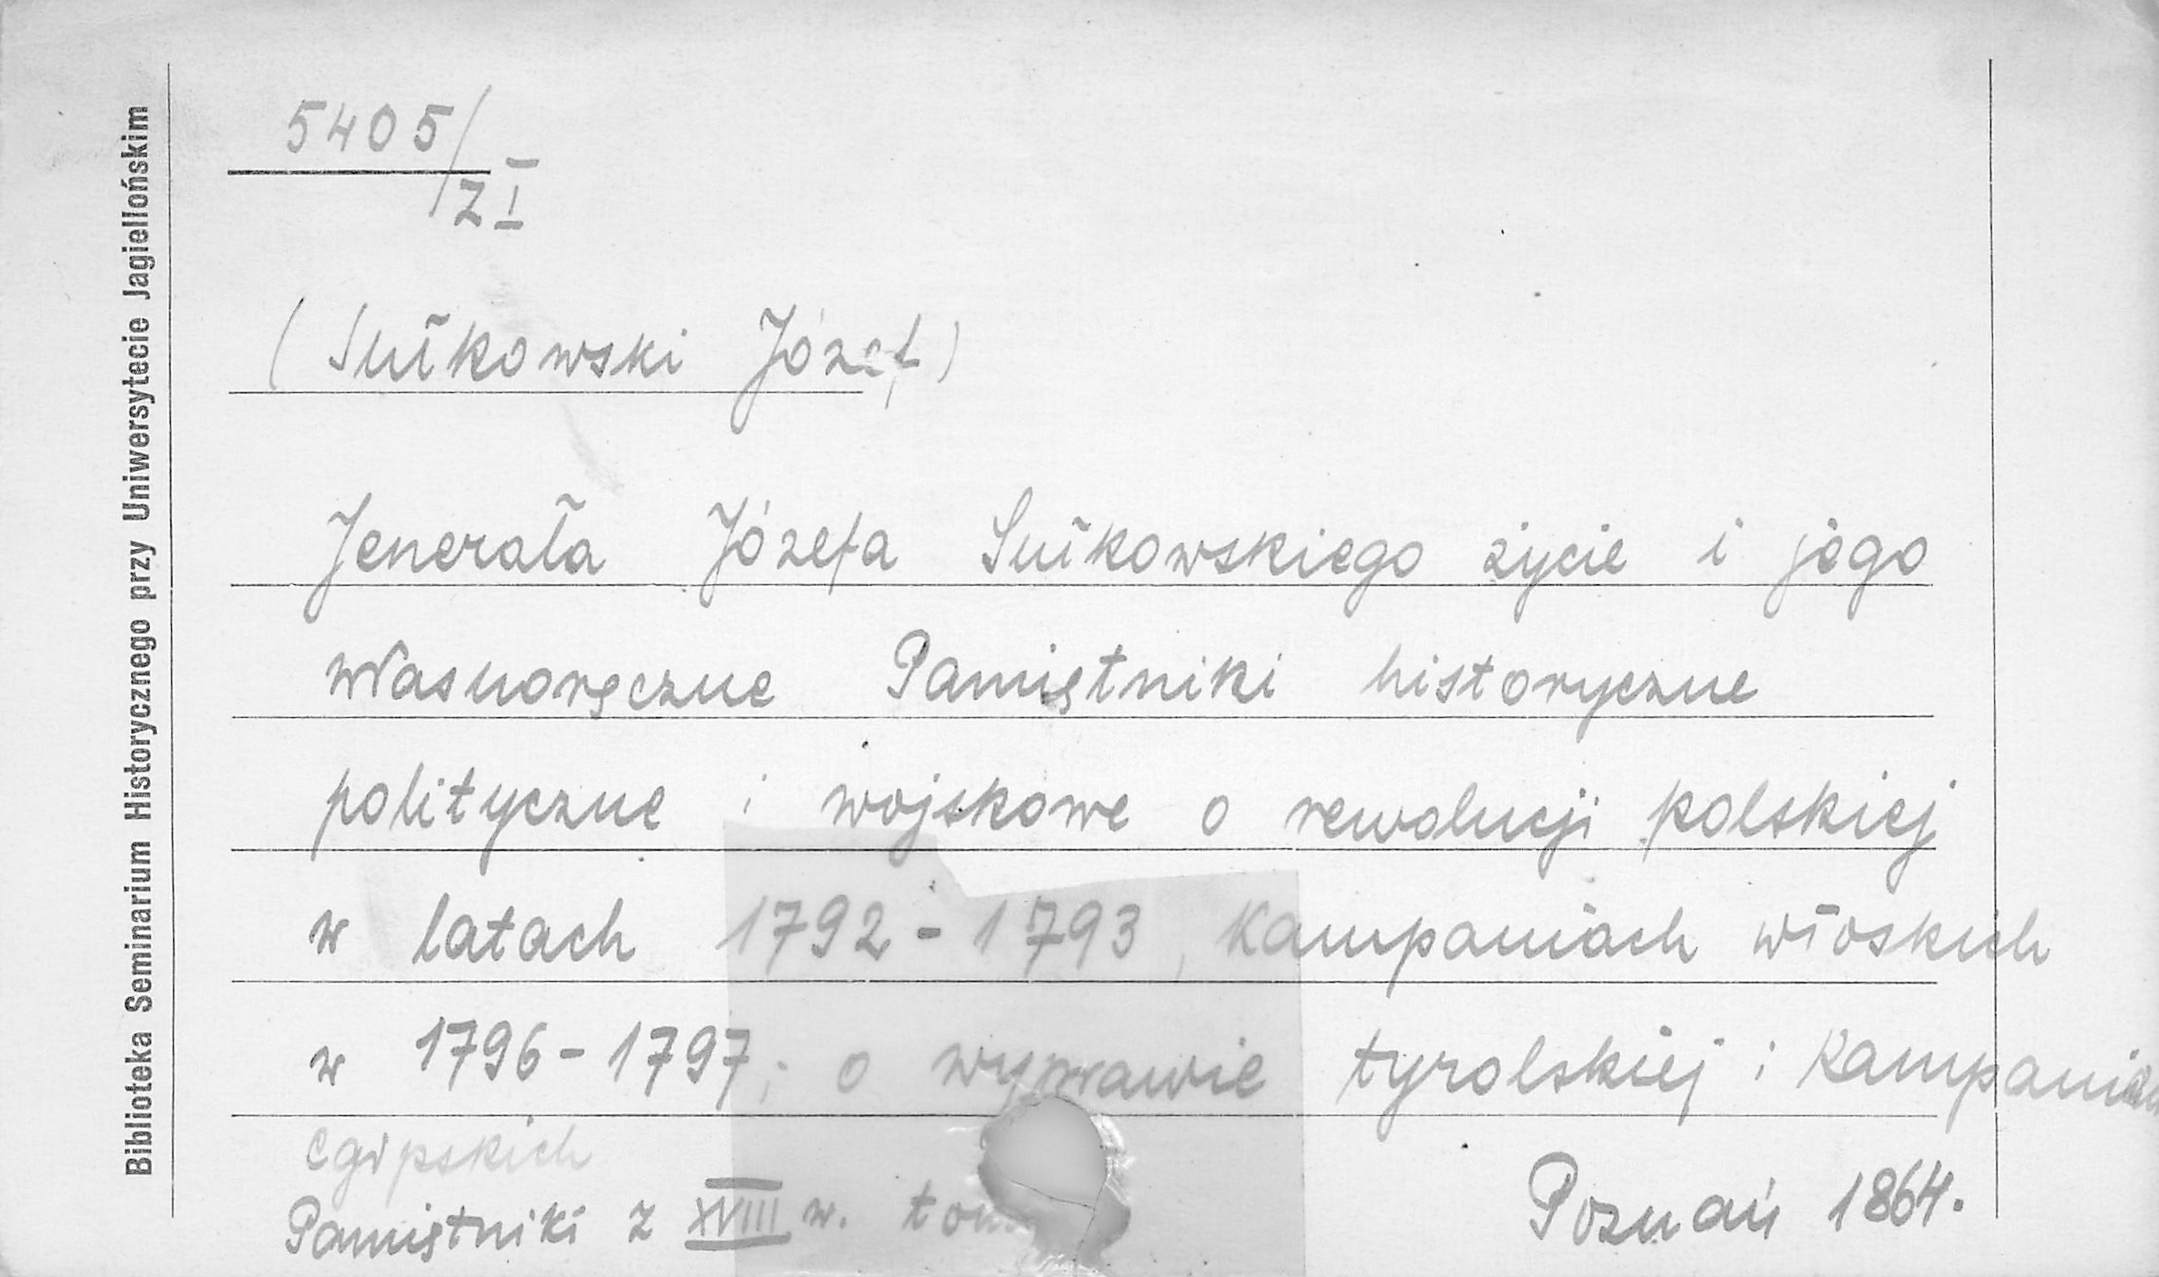 Biblioteka Seminarium Historycznego przy Uniwersytecie Jagiellońskim
5405/
Z I
(Sułkowski Józef)
Jenerała Józefa Sułkowskiego życie i jego
własnoręczne Pamiętniki historyczne
polityczne i wojskowe o rewolucji polskiej
w latach 1792-1793, Kampaniach włoskich
w 1796-1797; o wyprawie tyrolskiej i Kampaniach
egipskich
Pamiętniki z XVIII w. tom
Poznań 1864.